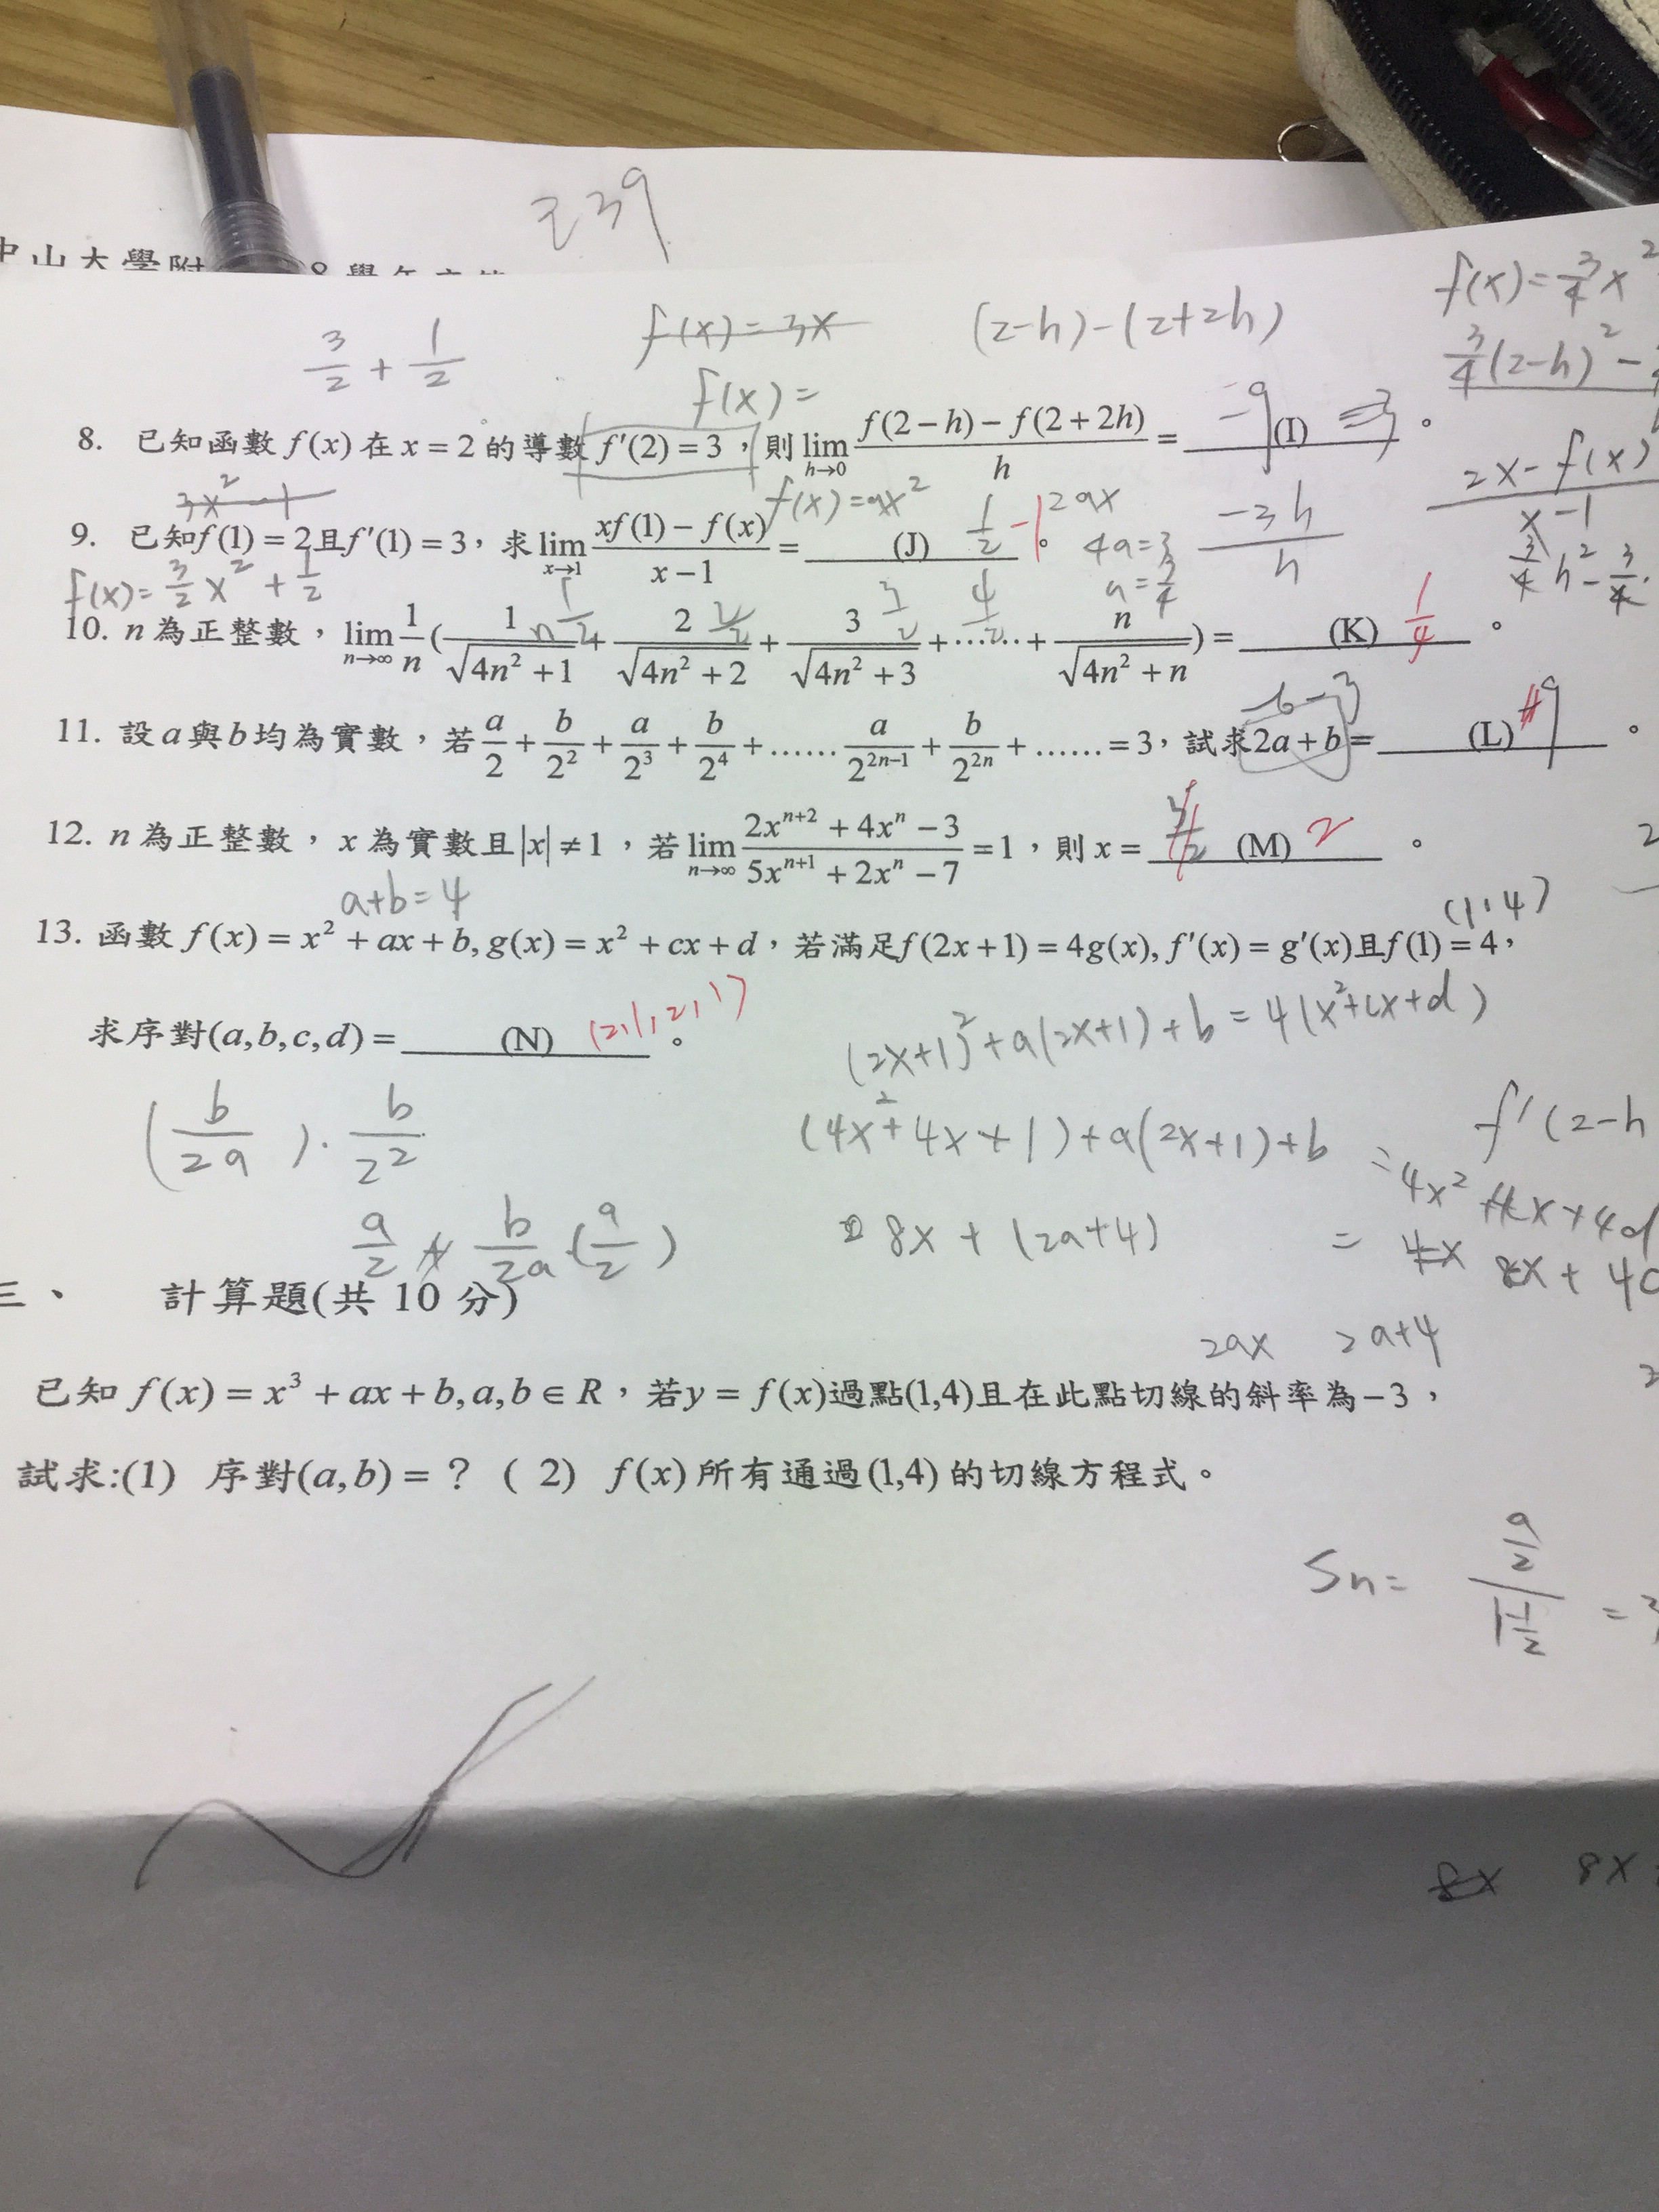 239
中山大學附
3/2 + 1/2
f(x) = 3x
(2-h)-(2+2h)
f(x) = 3/4 x²
3/4 (2-h)² -
f(x) =
8. 已知函數 f(x) 在 x = 2 的導數 f'(2) = 3，則 lim h→0 (f(2-h) - f(2+2h))/h = -9 (I)。
3x² - 1
f(x) = ax²
2ax
-3h/h
(2x - f(x))/(x-1)
9. 已知f(1) = 2且f'(1) = 3，求 lim x→1 (xf(1) - f(x))/(x-1) = (J) 1/2 -1。
4a = 3
a = 3/4
f(x) = 3/2 x² + 1/2
10. n 為正整數，lim n→∞ 1/n (1/√(4n²+1) + 2/√(4n²+2) + 3/√(4n²+3) + ...... + n/√(4n²+n)) = (K) 1/4。
11. 設 a 與 b 均為實數，若 a/2 + b/2² + a/2³ + b/2⁴ + ...... a/2²ⁿ⁻¹ + b/2²ⁿ + ...... = 3，試求2a + b = (L) 9。
12. n 為正整數，x 為實數且|x| ≠ 1，若 lim n→∞ (2xⁿ⁺² + 4xⁿ - 3)/(5xⁿ⁺¹ + 2xⁿ - 7) = 1，則 x = (M) 2。
a+b=4
(1,4)
13. 函數 f(x) = x² + ax + b, g(x) = x² + cx + d，若滿足f(2x+1) = 4g(x), f'(x) = g'(x)且f(1) = 4，
求序對(a,b,c,d) = (N) (2,1,2,1)。
(2x+1)² + a(2x+1) + b = 4(x²+cx+d)
(b/2a)·b/2²
(4x²+4x+1)+a(2x+1)+b
f'(2-h
= 4x²
a/2
b/2a (a/2)
8x + (2a+4)
三、 計算題(共 10 分)
2ax 2a+4
已知 f(x) = x³ + ax + b, a, b ∈ R，若y = f(x)過點(1,4)且在此點切線的斜率為-3，
試求:(1) 序對(a,b) = ? ( 2) f(x) 所有通過(1,4) 的切線方程式。
Sn = (a/2)/(1-1/2) = 3
8x 8x